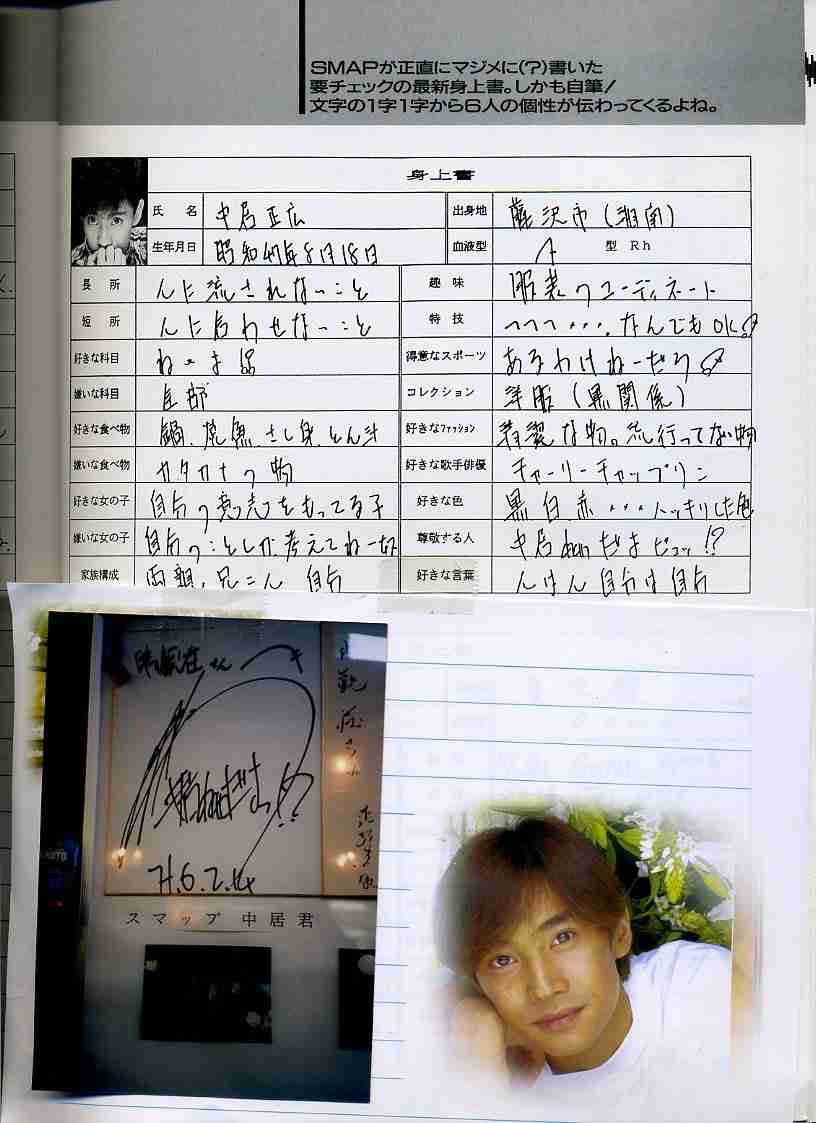 SMAPが正直にマジメに(?)書いた
要チェックの最新身上書。しかも自筆!
文字の1字1字から6人の個性が伝わってくるよね。
身上書
氏名 中居正広 出身地 藤沢市(湘南)
生年月日 昭和47年8月18日 血液型 A 型 Rh
長所 人に流されないこと 趣味 服装のコーディネート
短所 人に合わせないこと 特技 へへへ・・・・なんでもOK
好きな科目 ねーま 得意なスポーツ あるわけねーだろ
嫌いな科目 全部 コレクション 洋服(黒関係)
好きな食べ物 鍋、焼魚、さし身、とん汁 好きなファッション 綺麗な物。流行ってない物
嫌いな食べ物 カタカナの物 好きな歌手俳優 チャーリーチャップリン
好きな女の子 自分の意志をもってる子 好きな色 黒 白 赤 ・・・ハッキリした色
嫌いな女の子 自分のことしか考えてねー奴 尊敬する人 中居 だまピョッ!?
家族構成 両親、兄二人 自分 好きな言葉 自分は自分
さん江
スマップ 中居君